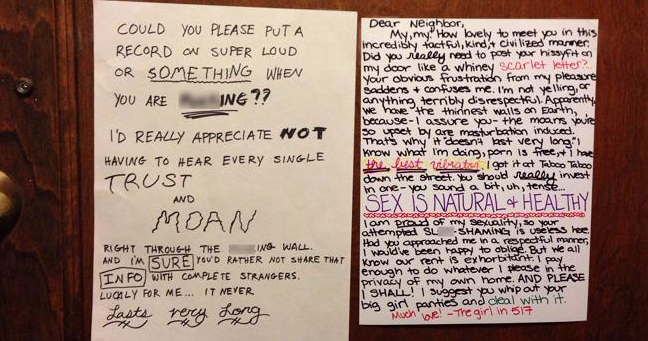 COULD YOU PLEASE PUT A
RECORD ON SUPER LOUD
OR SOMETHING WHEN
YOU ARE ING??
I'D REALLY APPRECIATE NOT
HAVING TO HEAR EVERY SINGLE
TRUST
AND
MOAN
RIGHT THROUGH THE ING WALL.
AND I'M SURE YOU'D RATHER NOT SHARE THAT
INFO WITH COMPLETE STRANGERS.
LUCKLY FOR ME... IT NEVER
Lasts very Long
Dear Neighbor,
My, my. How lovely to meet you in this
incredibly tactful, kind, & civilized manner.
Did you really need to post your hissyfit on
my door like a whiney scarlet letter?..
Your obvious frustration from my pleasure
saddens & confuses me. I'm not yelling, or
anything terribly disrespectful. Apparently,
we have the thinnest walls on Earth,
because - I assure you - the moans you're
so upset by are masturbation induced.
That's why it "doesn't last very long," I
know what I'm doing, porn is free, & I have
the best vibrator. I got it at Taboo Taboo
down the street. You should really invest
in one - you sound a bit, uh, tense...
SEX IS NATURAL & HEALTHY
I am proud of my sexuality, so your
attempted SL -SHAMING is useless here.
Had you approached me in a respectful manner,
I would've been happy to oblige. But we all
know our rent is exhorbitant. I pay
enough to do whatever I please in the
privacy of my own home. AND PLEASE
I SHALL! I suggest you whip out your
big girl panties and deal with it.
Much love! - The girl in 517